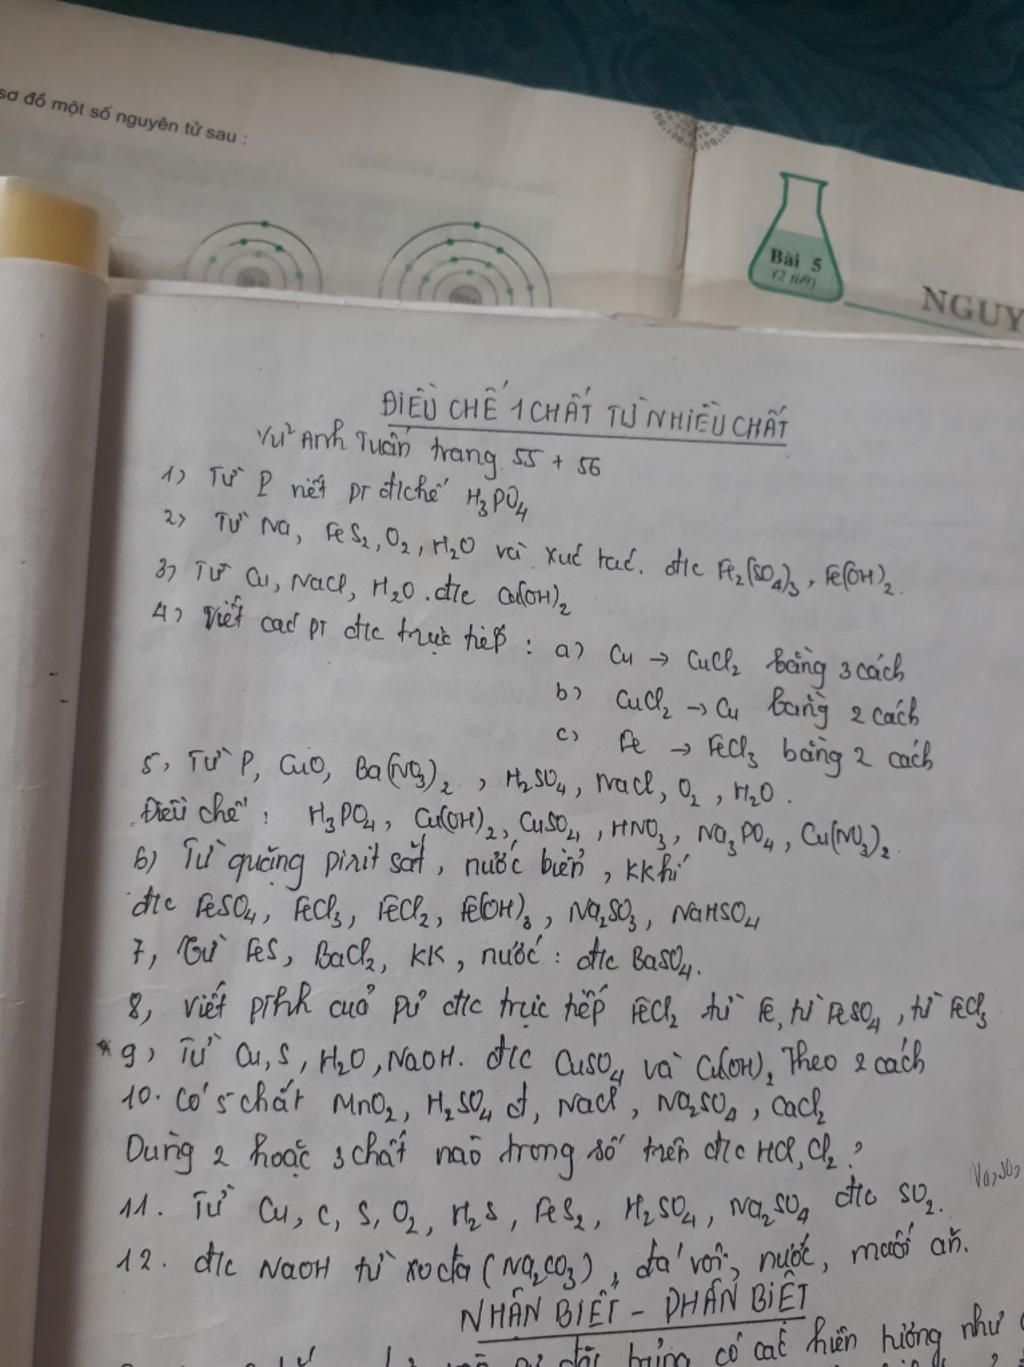 sơ đồ một số nguyên tử sau :
Bài 5
(2 tiết)
NGUY
ĐIỀU CHẾ 1 CHẤT TỪ NHIỀU CHẤT
Vũ Anh Tuấn trang 55 + 56
1) Từ P viết pt đchế H₃PO₄
2) Từ Na, FeS₂, O₂, H₂O và xúc tác. đ/c Fe₂(SO₄)₃, Fe(OH)₂.
3) Từ Cu, NaCl, H₂O. đ/c Cu(OH)₂
4) Viết các pt đ/c trực tiếp : a) Cu → CuCl₂ bằng 3 cách
b) CuCl₂ → Cu bằng 2 cách
c) Fe → FeCl₃ bằng 2 cách
5, Từ P, CuO, Ba(NO₃)₂, H₂SO₄, NaCl, O₂, H₂O.
Điều chế : H₃PO₄, Cu(OH)₂, CuSO₄, HNO₃, Na₃PO₄, Cu(NO₃)₂.
6) Từ quặng pirit sắt, nước biển, kkhí
đ/c FeSO₄, FeCl₃, FeCl₂, Fe(OH)₃, Na₂SO₃, NaHSO₄
7, Từ FeS, BaCl₂, KK, nước : đ/c BaSO₄.
8, viết ptnh của pư đ/c trực tiếp FeCl₂ từ Fe, từ FeSO₄, từ FeCl₃
* 9, Từ Cu, S, H₂O, NaOH. đ/c CuSO₄ và Cu(OH)₂ Theo 2 cách
10. Có 5 chất MnO₂, H₂SO₄ đ, NaCl, Na₂SO₄, CaCl₂
Dùng 2 hoặc 3 chất nào trong số trên đ/c HCl, Cl₂ ?
11. Từ Cu, C, S, O₂, H₂S, FeS₂, H₂SO₄, Na₂SO₄ đ/c SO₂.
12. đ/c NaOH từ xođa (Na₂CO₃), đá vôi, nước, muối ăn.
NHẬN BIẾT - PHÂN BIỆT
có các hiện tượng như